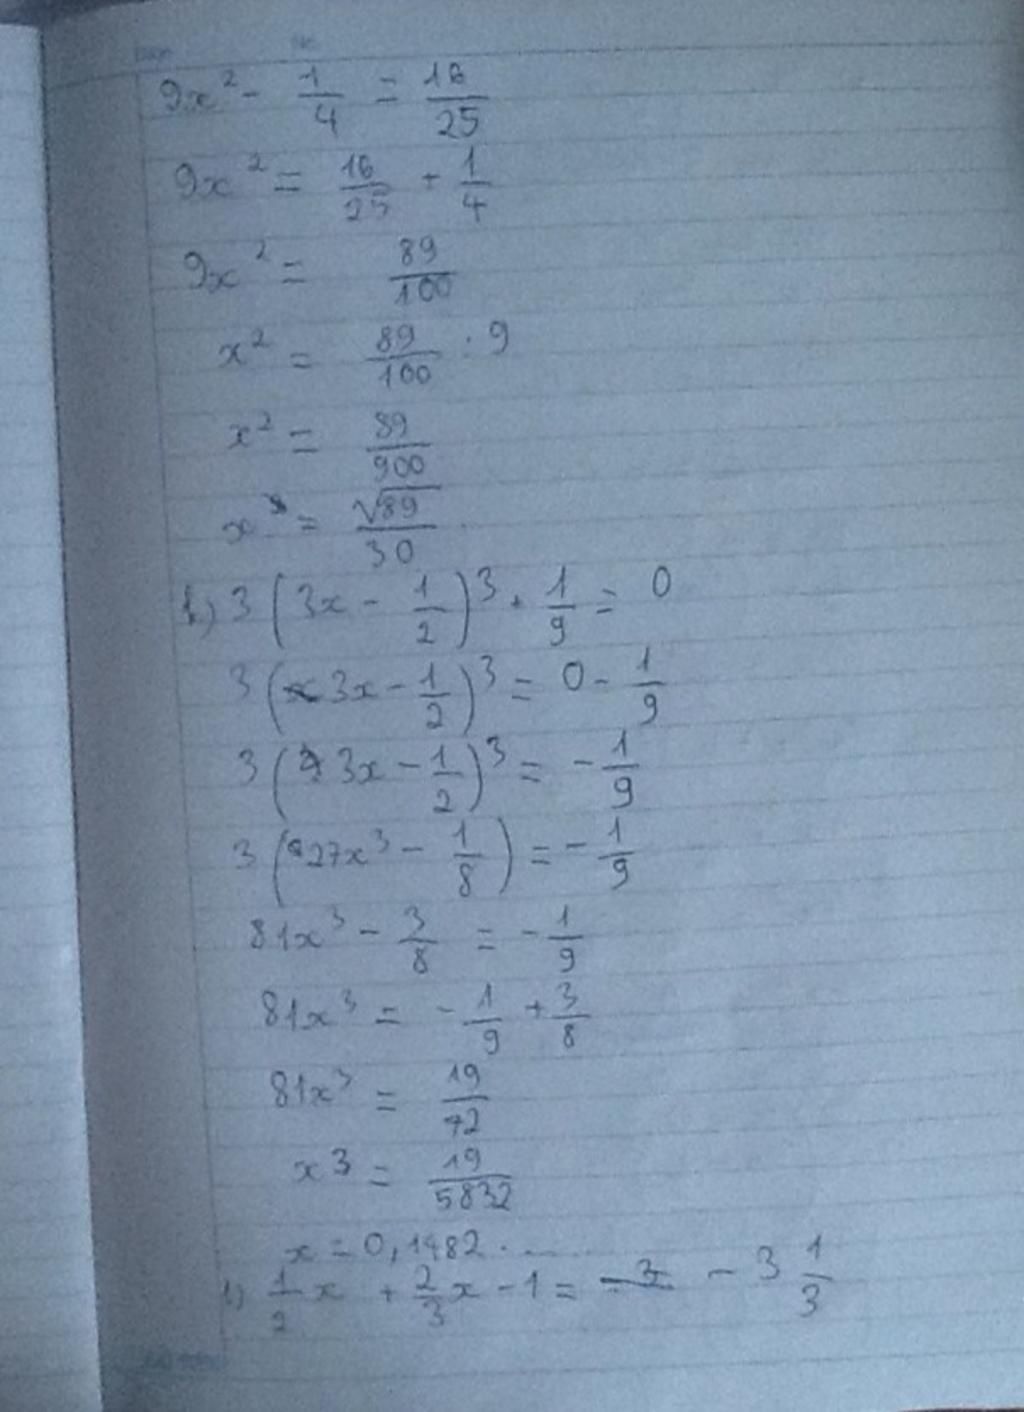 9x² - 1/4 = 16/25
9x² = 16/25 + 1/4
9x² = 89/100
x² = 89/100 : 9
x² = 89/900
x = √89/30
3(3x - 1/2)³ + 1/9 = 0
3(3x - 1/2)³ = 0 - 1/9
3(3x - 1/2)³ = -1/9
3(27x³ - 1/8) = -1/9
81x³ - 3/8 = -1/9
81x³ = -1/9 + 3/8
81x³ = 19/72
x³ = 19/5832
x = 0,1482...
1/2x + 2/3x - 1 = - 3 1/3